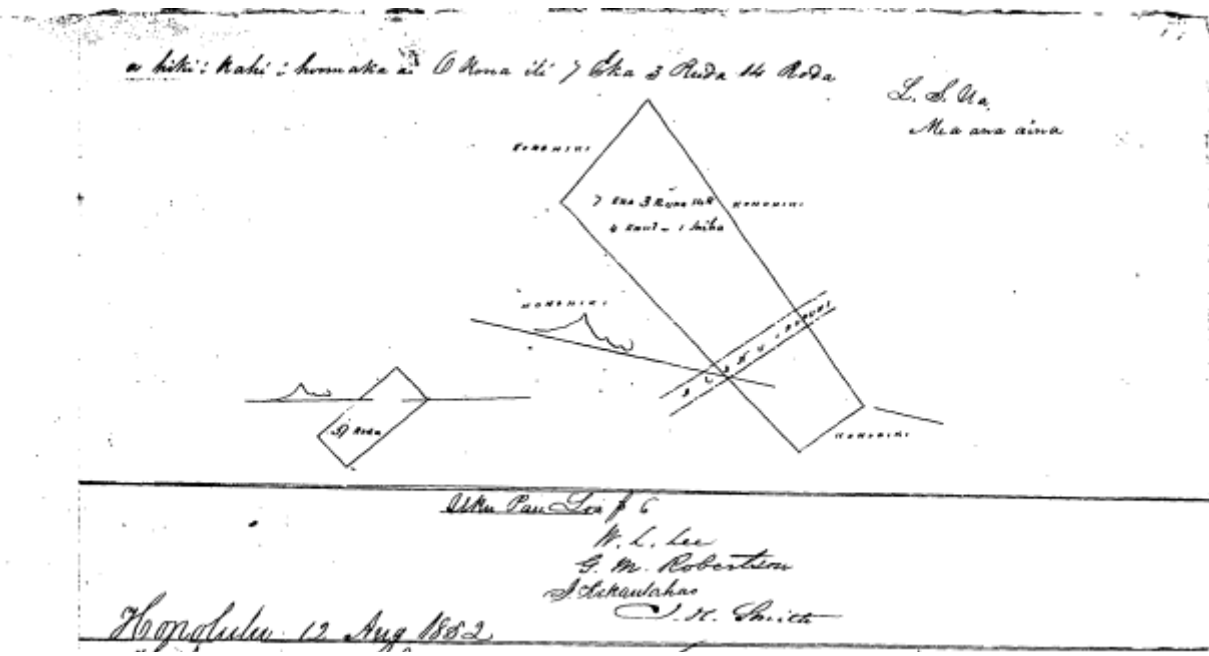 a hiki i kahi i hoomaka ai O Kona ili 7 Eka 3 Ruda 14 Roda
L. S. Ua
Mea ana aina
KONOHIKI
7 Eka 3 Ruda 14 R
KONOHIKI
4 Kaul - 1
KONOHIKI
ALANUI AUPUNI
37 Roda
KONOHIKI
Uku Pau Loa $ 6
W. L. Lee
G. M. Robertson
J. Kekaulahao
J. H. Smith
Honolulu 12 Aug 1852